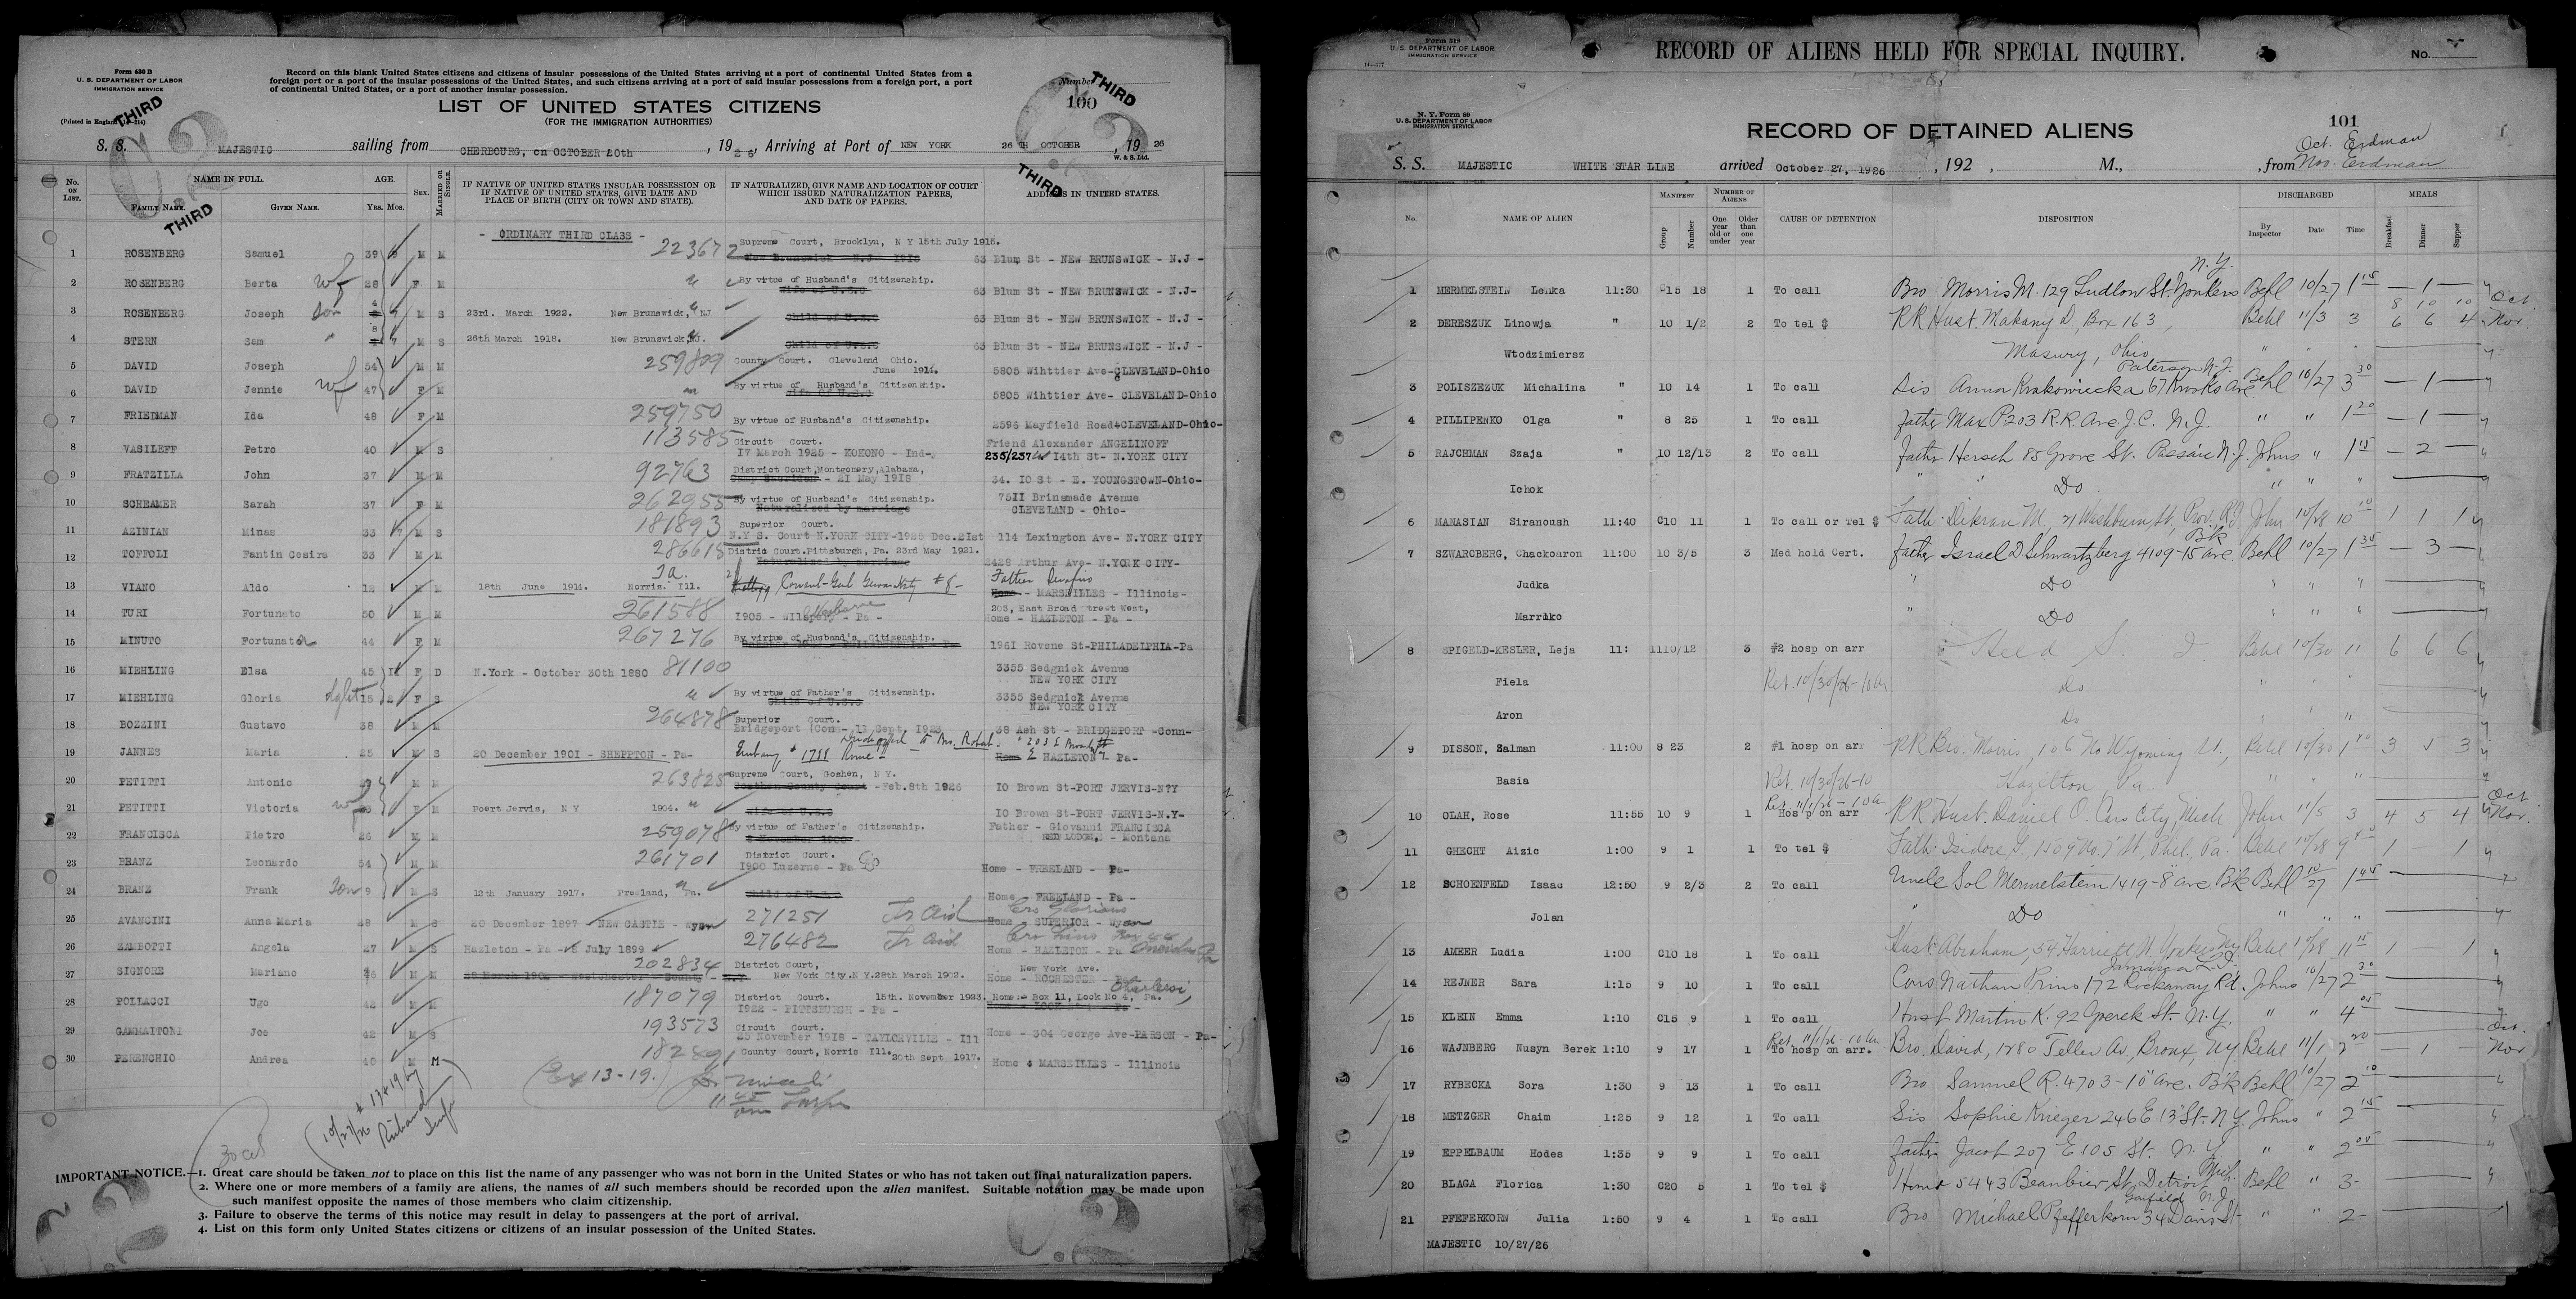 Form 630 B
U. S. DEPARTMENT OF LABOR
IMMIGRATION SERVICE
Record on this blank United States citizens and citizens of insular possessions of the United States arriving at a port of continental United States from a
foreign port or a port of the insular possessions of the United States, and such citizens arriving at a port of said insular possessions from a foreign port, a port
of continental United States, or a port of another insular possession.
Number
100
THIRD
THIRD
LIST OF UNITED STATES CITIZENS
(FOR THE IMMIGRATION AUTHORITIES)
S. S. MAJESTIC sailing from CHERBOURG, on OCTOBER 20th, 1926, Arriving at Port of NEW YORK 26TH OCTOBER, 1926
W. & S. Ltd.
THIRD
THIRD
No. ON LIST. NAME IN FULL. FAMILY NAME. GIVEN NAME. AGE. YRS. MOS. SEX. MARRIED OR SINGLE. IF NATIVE OF UNITED STATES INSULAR POSSESSION OR IF NATIVE OF UNITED STATES, GIVE DATE AND PLACE OF BIRTH (CITY OR TOWN AND STATE). IF NATURALIZED, GIVE NAME AND LOCATION OF COURT WHICH ISSUED NATURALIZATION PAPERS, AND DATE OF PAPERS. ADDRESS IN UNITED STATES.
- ORDINARY THIRD CLASS -
1 ROSENBERG Samuel 39 M M 223672 Supreme Court, Brooklyn, N Y 15th July 1915. 63 Blum St - NEW BRUNSWICK - N.J -
2 ROSENBERG Berta wf 28 F M By virtue of Husband's Citizenship. 63 Blum St - NEW BRUNSWICK - N.J-
3 ROSENBERG Joseph son 4 M S 23rd. March 1922. New Brunswick, NJ Child of U.S.C 63 Blum St - NEW BRUNSWICK - N.J -
4 STERN Sam " 8 M S 26th March 1918. New Brunswick NJ. Child of U.S.C 63 Blum St - NEW BRUNSWICK - N.J -
5 DAVID Joseph 54 M M 259809 County Court. Cleveland Ohio. June 1914. 5805 Wihttier Ave-CLEVELAND-Ohio
6 DAVID Jennie wf 47 F M By virtue of Husband's Citizenship. 5805 Wihttier Ave- CLEVELAND-Ohio
7 FRIEDMAN Ida 48 F M 259750 By virtue of Husband's Citizenship. 2596 Mayfield Road-CLEVELAND-Ohio-
8 VASILEFF Petro 40 M S 113585 Circuit Court. 17 March 1925 - KOKONO - Ind- Friend Alexander ANGELINOFF 235/237 W 14th St- N.YORK CITY
9 FRATZILLA John 37 M M 92763 District Court, Montgomery, Alabama, - 21 May 1918 34. 10 St - E. YOUNGSTOWN-Ohio-
10 SCHEAMER Sarah 37 F M 262955 By virtue of Husband's Citizenship. Naturalized by marriage 7511 Brinsmade Avenue CLEVELAND - Ohio-
11 AZINIAN Minas 33 7 M S 181893 Superior Court. N.Y S. Court N.YORK CITY-1925 Dec.21st 114 Lexington Ave- N.YORK CITY
12 TOFFOLI Fantin Cesira 33 M M 286615 District Court.Pittsburgh, Pa. 23rd May 1921. 2428 Arthur Ave- N.YORK CITY-
13 VIANO Aldo 12 M M 18th June 1914. Norris. Ill. Father Serafino Home - MARSEILLES - Illinois-
14 TURI Fortunato 50 M M 261588 1905 - Wilkesbarre - Pa - 203, East Broad Street West, Home - HAZLETON - Pa -
15 MINUTO Fortunata 44 F M 267276 By virtue of Husband's Citizenship. 1961 Rovene St-PHILADELPHIA-Pa
16 MIEHLING Elsa 45 11 F D N.York - October 30th 1880 81100 3355 Sedgnick Avenue NEW YORK CITY
17 MIEHLING Gloria dght 15 2 F S By virtue of Father's Citizenship. Child of U.S.C 3355 Sedgnick Avenue NEW YORK CITY
18 BOZZINI Gustavo 38 M M 264878 Superior Court. Bridgeport (Conn- 11 Sept. 1925 38 Ash St - BRIDGEPORT -Conn-
19 JANNES Maria 25 M S 20 December 1901 - SHEPPTON - Pa- Home HAZLETON - Pa-
20 PETITTI Antonio 29 M M 263825 Supreme Court, Goshen, N Y. -Feb.8th 1926 10 Brown St-PORT JERVIS-N?Y
21 PETITTI Victoria wf 23 F M Poert Jervis, N Y 1904. Wife of U.S.C 10 Brown St-PORT JERVIS-N.Y-
22 FRANCISCA Pietro 26 M M 259078 By virtue of Father's Citizenship. Father - Giovanni FRANCISCA RED LODGE, - Montana
23 BRANZ Leonardo 54 M M 261701 District Court. 1900 Luzerne - Pa Home - FREELAND - Pa-
24 BRANZ Frank Son 9 M S 12th January 1917. Freeland, Pa. Child of U.S. Home - FREELAND - Pa -
25 AVANCINI Anna Maria 28 M S 20 December 1897 - NEW CASTLE - Wyom 271251 Home - SUPERIOR - Wyom
26 ZAMBOTTI Angela 27 M S Hazleton - Pa - 8 July 1899 276482 Home - HAZLETON - Pa
27 SIGNORE Mariano M M 202834 District Court, New York City.N.Y.28th March 1902. New York Ave. Home - ROCHESTER - Pa-
28 POLLACCI Ugo 42 M M 187079 District Court. 15th. November 1923. 1922 - PITTSBURGH - Pa - Home- Box 11, Lock No 4, Pa. Charleroi,
29 GAMMAITONI Joe 42 M S 193573 Circuit Court. 25 November 1918 - TAYLORVILLE - Ill Home - 304 George Ave-PARSON - Pa-
30 PERENCHIO Andrea 40 M M 182891 County Court, Norris Ill. 30th Sept 1917. Home - MARSEILLES - Illinois
(Ex 13-19.)
IMPORTANT NOTICE.—1. Great care should be taken not to place on this list the name of any passenger who was not born in the United States or who has not taken out final naturalization papers.
2. Where one or more members of a family are aliens, the names of all such members should be recorded upon the alien manifest. Suitable notation may be made upon
such manifest opposite the names of those members who claim citizenship.
3. Failure to observe the terms of this notice may result in delay to passengers at the port of arrival.
4. List on this form only United States citizens or citizens of an insular possession of the United States.
Form 518
U. S. DEPARTMENT OF LABOR
IMMIGRATION SERVICE
RECORD OF ALIENS HELD FOR SPECIAL INQUIRY.
No.
N. Y. Form 89
U. S. DEPARTMENT OF LABOR
IMMIGRATION SERVICE
RECORD OF DETAINED ALIENS
101
Oct. Erdman
S. S. MAJESTIC WHITE STAR LINE arrived October 27, 1926, 192 , M., , from Nov. Erdman
No. NAME OF ALIEN MANIFEST Group Number NUMBER OF ALIENS One year old or under Older than one year CAUSE OF DETENTION DISPOSITION DISCHARGED By Inspector Date Time MEALS Breakfast Dinner Supper
1 MERMELSTEIN Lenka 11:30 C15 18 1 To call Bro Morris M. 129 Ludlow St. Yonkers N.Y. Behl 10/27 1 15 — 1 —
2 DERESZUK Linowja " 10 1/2 2 To tel $ RR Hust. Makany D, Box 163, Behl 11/3 3 6 6 4 Nov.
Wlodzimiersz Masury, Ohio " " "
3 POLISZEZUK Michalina " 10 14 1 To call Sis Anna Krakowiecka 67 Kooks Ave Paterson N.J. Behl 10/27 3 30 — 1 —
4 PILLIPENKO Olga " 8 25 1 To call father Max P. 203 R.R. Ave J.C. N.J. " " 1 20 — 1 —
5 RAJCHMAN Szaja " 10 12/13 2 To call father Hersch 85 Grove St. Passaic N.J. Johns " 1 15 — 2 —
Ichok " " Do " " "
6 MANASIAN Siranoush 11:40 C10 11 1 To call or Tel $ Fath. Dikran M, 21 Washburn St, Prov. R.I. John 10/28 10 10 1 1 1
7 SZWARCBERG, Chackouron 11:00 10 3/5 3 Med hold Cert. father Israel D Schwartzberg 4109-15 Ave. Bk Behl 10/27 1 35 — 3 —
Judka " Do " " "
Marriko " Do " " "
8 SPIGELD-KESLER, Leja 11: 11 10/12 3 #2 hosp on arr Held S. I Behl 10/30 11 6 6 6
Fiela Ret. 10/30/26-10 am do
Aron Do
9 DISSON, Zalman 11:00 8 23 2 #1 hosp on arr RR Bro. Morris, 106 No Wyoming St., Behl 10/30 1 40 3 5 3
Basia Ret 10/30/26-10 Hazelton Pa. " " "
10 OLAH, Rose 11:55 10 9 1 Ret. 11/1/26-10 am Hosp on arr RR Hust. Daniel O. Caro City, Mich John 11/5 3 4 5 4 Oct. Nov.
11 GHECHT Aizic 1:00 9 1 1 To tel $ Fath. Isidore G., 1509 No. 7 St, Phil., Pa. Behl 10/28 9 40 1 — 1
12 SCHOENFELD Isaac 12:50 9 2/3 2 To call Uncle Sol Mermelstein 1419-8 Ave. Bk Behl 10/27 1 45
Jolan " Do " " "
13 AMEER Ludia 1:00 C10 18 1 To call Husb. Abraham, 54 Harriett St. Yonkers NY Behl 10/28 11 15 1 — 1
14 REJNER Sara 1:15 9 10 1 To call Cous Nathan Prins 172 Rockaway Rd. Jamaica L.I. Johns 10/27 2 30
15 KLEIN Emma 1:10 C15 9 1 To call Husb Martin K. 92 Goerck St. N.Y. " " 4 05
16 WAJNBERG Nusyn Berek 1:10 9 17 1 Ret. 11/1/26-10 am To hosp on arr. Bro. David, 1280 Teller Av, Bronx, NY Behl 11/1 2 20 — 1 — Oct. Nov
17 RYBECKA Sora 1:30 9 13 1 To call Bro Samuel R. 4703-10 Ave. Bk Behl 10/27 2 10
18 METZGER Chaim 1:25 9 12 1 To call Sis Sophie Krieger 246 E 13 St. N.Y. Johns " 2 15
19 EPPELBAUM Hodes 1:35 9 9 1 To call father Jacob 207 E 105 St. N.Y " " 2 05
20 BLAGA Florica 1:30 C20 5 1 To tel $ Husb 5443 Beaubier St, Detroit Mich. Behl " 3-
21 PFEFERKORN Julia 1:50 9 4 1 To call Bro Michael Pfefferkorn 34 Davis St. Garfield N.J. " " 2-
MAJESTIC 10/27/26